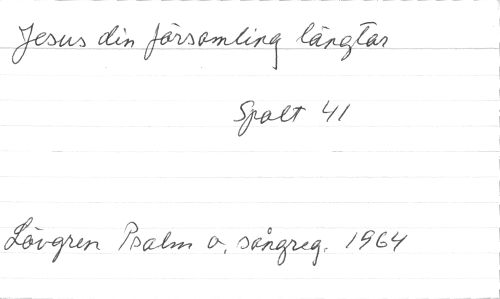 Jesus din församling längtar
Spalt 41
Lövgren Psalm o. sångreg. 1964